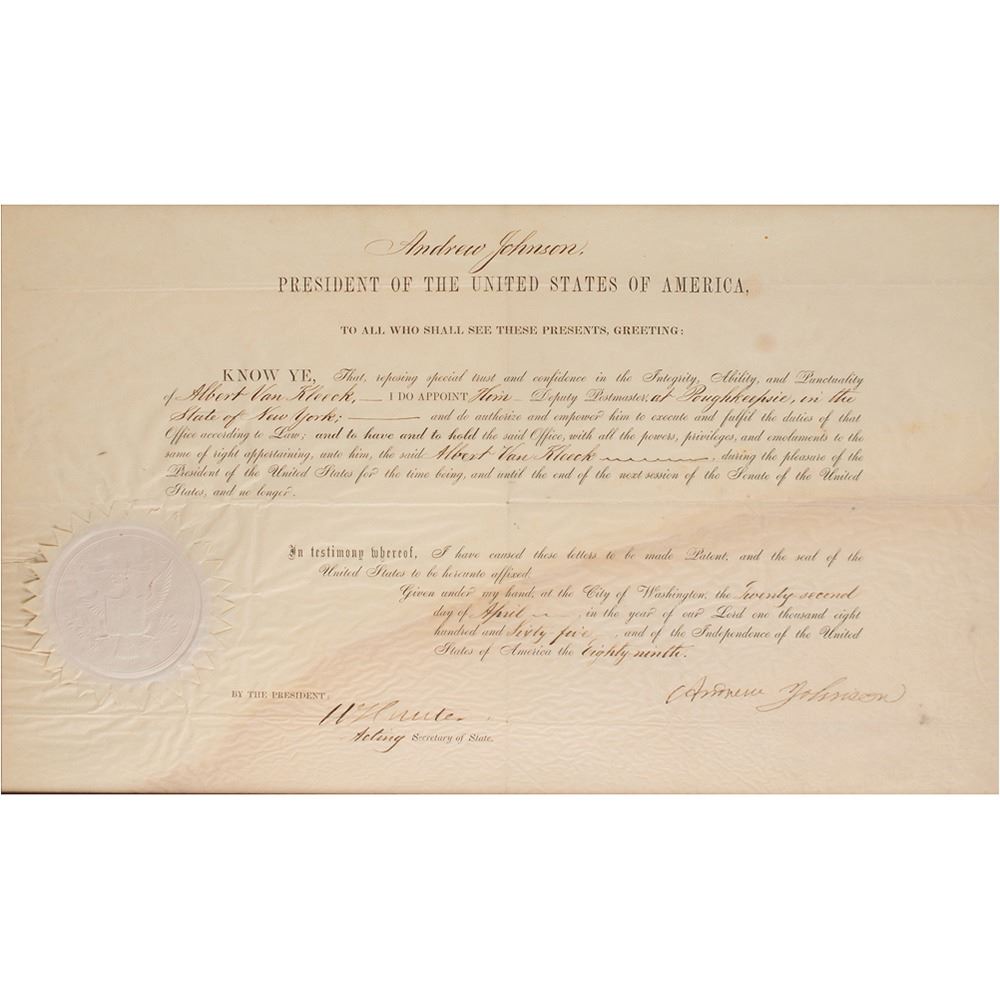 Andrew Johnson,
PRESIDENT OF THE UNITED STATES OF AMERICA,
TO ALL WHO SHALL SEE THESE PRESENTS, GREETING:
KNOW YE, That, reposing special trust and confidence in the Integrity, Ability, and Punctuality
of Albert Van Kleeck, — I DO APPOINT Him — Deputy Postmaster, at Poughkeepsie, in the
State of New York; — and do authorize and empower him to execute and fulfil the duties of that
Office according to Law; and to have and to hold the said Office, with all the powers, privileges, and emoluments to the
same of right appertaining, unto him, the said Albert Van Kleeck —, during the pleasure of the
President of the United States for the time being, and until the end of the next session of the Senate of the United
States, and no longer.
In testimony whereof, I have caused these letters to be made Patent, and the seal of the
United States to be hereunto affixed.
Given under my hand, at the City of Washington, the Twenty second
day of April —, in the year of our Lord one thousand eight
hundred and Sixty five, and of the Independence of the United
States of America the Eighty-ninth.
BY THE PRESIDENT:
Andrew Johnson
W Hunter
Acting Secretary of State.